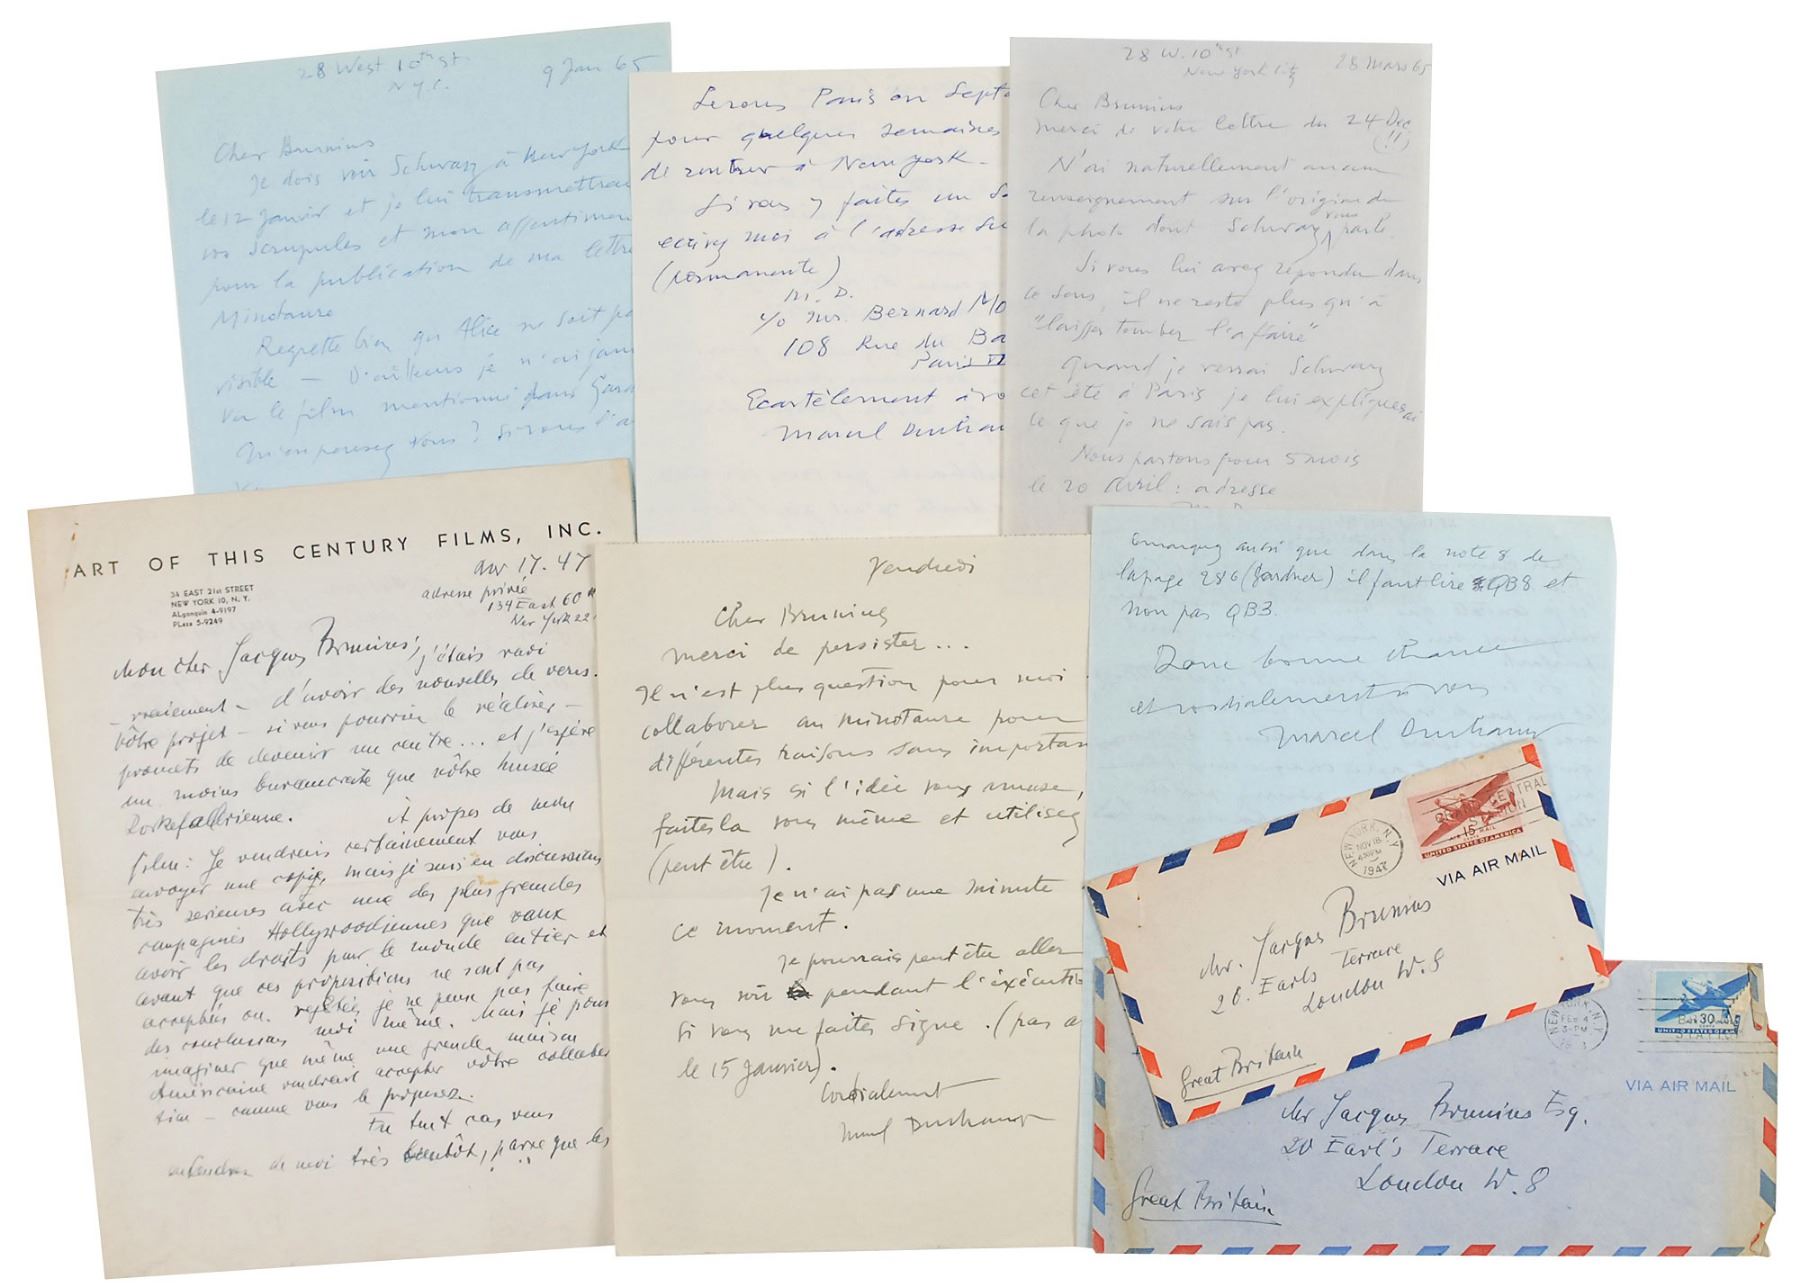 28 West 10th St.
N.Y.C.
9 Jan 65
Cher Brunius
Je dois voir Schwarz à New York
le 12 Janvier et je lui transmettrai
vos scrupules et mon assentiment
pour la publication de ma lettre
Minotaure
Regrette bien que Alice ne soit pa
visible — D'ailleurs je n'ai jam
vu le film mentionné dans Gard
M'en
Serons Paris en Septe
pour quelques semaines
de rentrer à New York.
Si vous y faites un
ecrivez moi à l'adresse su
(permanente)
M. D.
c/o Mrs. Bernard Mo
108 Rue du Ba
Paris VI
Ecartèlement à vo
Marcel Ducham
28 W. 10th St
New York City
28 Mars 65
Cher Brunius
Merci de votre lettre du 24 Dec
(!!)
N'ai naturellement aucun
renseignement sur l'origine de
la photo dont Schwarz vous parle.
Si vous lui avez répondu dans
ce sens, il ne reste plus qu'à
"laisser tomber l'affaire"
Quand je verrai Schwarz
cet été à Paris je lui expliquerai
ce que je ne sais pas.
Nous partons pour 5 mois
le 20 Avril : adresse
ART OF THIS CENTURY FILMS, INC.
34 EAST 21st STREET
NEW YORK 10, N. Y.
ALgonquin 4-9197
PLaza 5-9249
17. 47
adresse privée
134 East 60th
New York 22.
Mon cher Jacques Brunius, j'étais ravi
- vraiement - d'avoir des nouvelles de vous.
Vôtre projet - si vous pourriez le réaliser -
promets de devenir un centre... et j'espère
un moins bureaucrate que nôtre Musée
Rockefellerienne. À propos de mon
film: Je voudrais certainement vous
envoyer une copie, mais je suis en discussions
très serieuses avec une des plus grandes
compagnies Hollywoodiennes que veux
avoir les droits pour le monde entier et
avant que ces propositions ne sont pas
acceptées ou rejetées je ne peux pas faire
des conclusions moi même. Mais je peux
imaginer que même une grande maison
Américaine voudrait accepter vôtre collabo
tion - comme vous le proposez.
En tout cas vous
entendrez de moi très bientôt, parce que les
Vendredi
Cher Brunius
merci de persister...
Il n'est plus question pour moi
collaborer au minotaure pour
différentes raisons sans importan
Mais si l'idée vous amuse,
faites la vous même et utilisez
(peut être).
Je n'ai pas une minute
ce moment.
Je pourrais peut être aller
vous voir pendant l'éxécutio
si vous me faites signe. (pas a
le 15 Janvier).
Cordialement
Marcel Duchamp
Remarquez aussi que dans la note 8 de
la page 286 (Gardner) il faut lire QB8 et
non pas QB3.
Donc bonne chance
et cordialement à vous
Marcel Duchamp
NEW YORK, N.Y.
NOV 18
1947
GRAND CENTRAL
STATION
15
AIR MAIL
UNITED STATES OF AMERICA
VIA AIR MAIL
Mr. Jacques Brunius
20. Earls Terrace
London W. 8
Great Britain
FEB 4
30
STATION
VIA AIR MAIL
Mr Jacques Brunius Esq.
20 Earl's Terrace
London W. 8
Great Britain